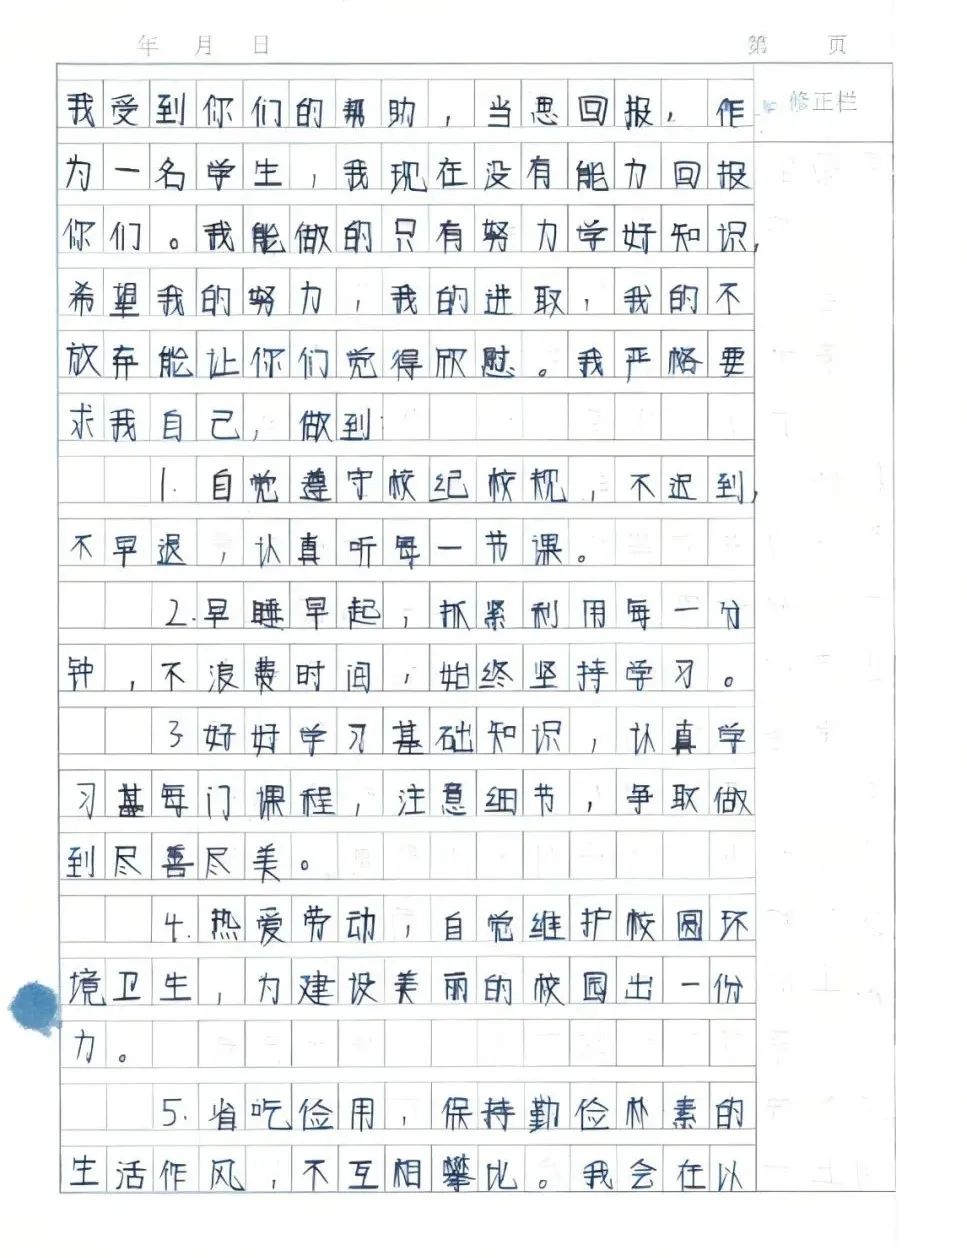 年 月 日 第 页
修正栏
我受到你们的帮助，当思回报，作
为一名学生，我现在没有能力回报
你们。我能做的只有努力学好知识，
希望我的努力，我的进取，我的不
放弃能让你们觉得欣慰。我严格要
求我自己，做到：
1.自觉遵守校纪校规，不迟到，
不早退，认真听每一节课。
2.早睡早起，抓紧利用每一分
钟，不浪费时间，始终坚持学习。
3好好学习基础知识，认真学
习基每门课程，注意细节，争取做
到尽善尽美。
4.热爱劳动，自觉维护校圆环
境卫生，为建设美丽的校园出一份
力。
5.省吃俭用，保持勤俭朴素的
生活作风，不互相攀比。我会在以